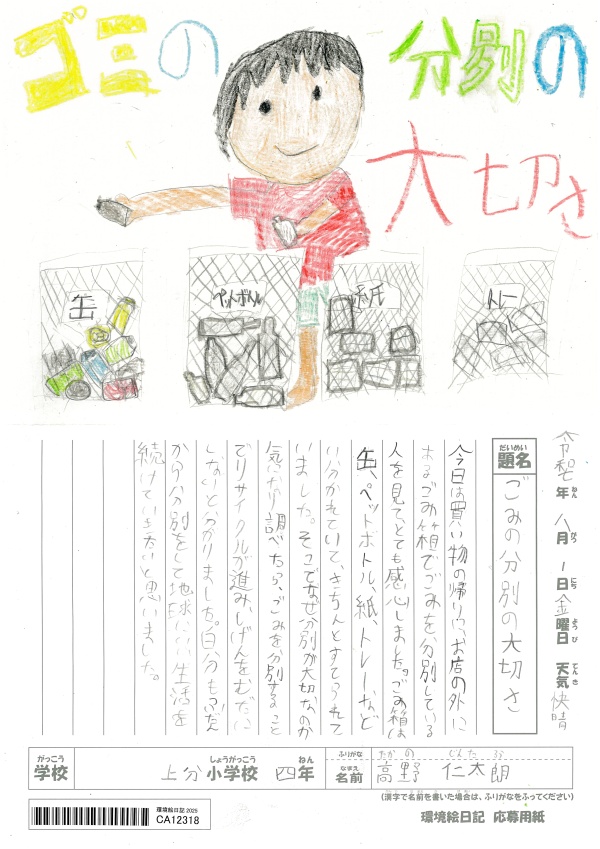 ゴミの
分別の
大切さ
缶
ペットボトル
紙
トレー
令和七年 八月 1日 金曜日 天気 快晴
ねん がつ にち ようび てんき
だいめい
題名 ごみの分別の大切さ
今日は買い物の帰りに、お店の外に
あるごみ箱でごみを分別している
人を見て、とても感心しました。ごみ箱は
缶、ペットボトル、紙、トレーなど
に分かれていて、きちんとすてられて
いました。そこでなぜ分別が大切なのか
気になり調べたら、ごみを分別すること
でリサイクルが進み、しげんをむだに
しないと分かりました。自分もふだん
から分別をして地球にいい生活を
続けていきたいと思いました。
がっこう しょうがっこう ねん
学校 上分 小学校 四年
ふりがな たかの じんたろう
なまえ
名前 高野 仁太朗
(漢字で名前を書いた場合は、ふりがなをふってください)
環境絵日記 2025
CA12318
環境絵日記 応募用紙